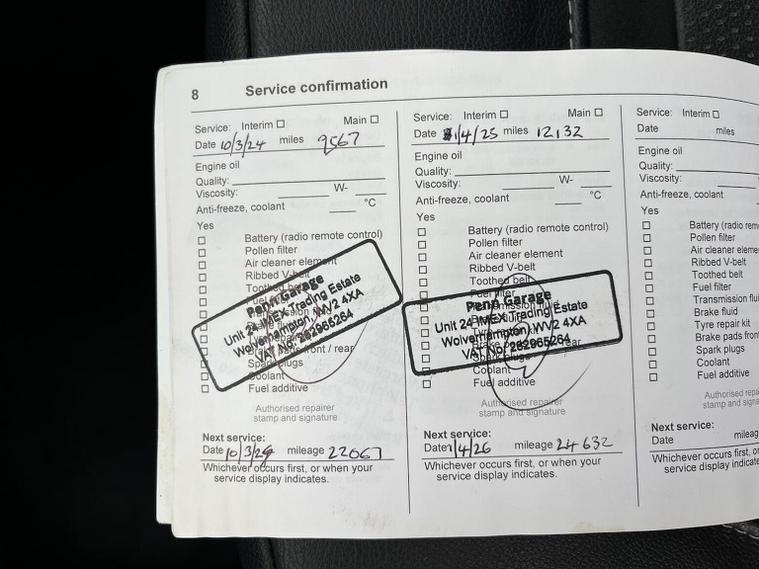 8 Service confirmation
Service: Interim Main
Date 10/3/24 miles 9567
Engine oil
Quality:
Viscosity: W-
Anti-freeze, coolant °C
Yes
Battery (radio remote control)
Pollen filter
Air cleaner element
Ribbed V-belt
Toothed
Penn Garage
Unit 24 IMEX Trading Estate
Wolverhampton, WV2 4XA
VAT No: 282965264
front / rear
Spark plugs
Coolant
Fuel additive
Authorised repairer
stamp and signature
Next service:
Date 10/3/29 mileage 22067
Whichever occurs first, or when your
service display indicates.
Service: Interim Main
Date 1/4/25 miles 12,132
Engine oil
Quality:
Viscosity: W-
Anti-freeze, coolant °C
Yes
Battery (radio remote control)
Pollen filter
Air cleaner element
Ribbed V-belt
Toothed belt
Fuel filter
Penn Garage
Unit 24 IMEX Trading Estate
Wolverhampton, WV2 4XA
VAT No: 282965264
Spark plugs
Coolant
Fuel additive
Authorised repairer
stamp and signature
Next service:
Date 1/4/26 mileage 24632
Whichever occurs first, or when your
service display indicates.
Service: Interim
Date miles
Engine oil
Quality:
Viscosity:
Anti-freeze, coolant
Yes
Battery (radio rem
Pollen filter
Air cleaner eleme
Ribbed V-belt
Toothed belt
Fuel filter
Transmission flui
Brake fluid
Tyre repair kit
Brake pads front
Spark plugs
Coolant
Fuel additive
Authorised repai
stamp and signa
Next service:
Date mileag
Whichever occurs first, o
service display indicate